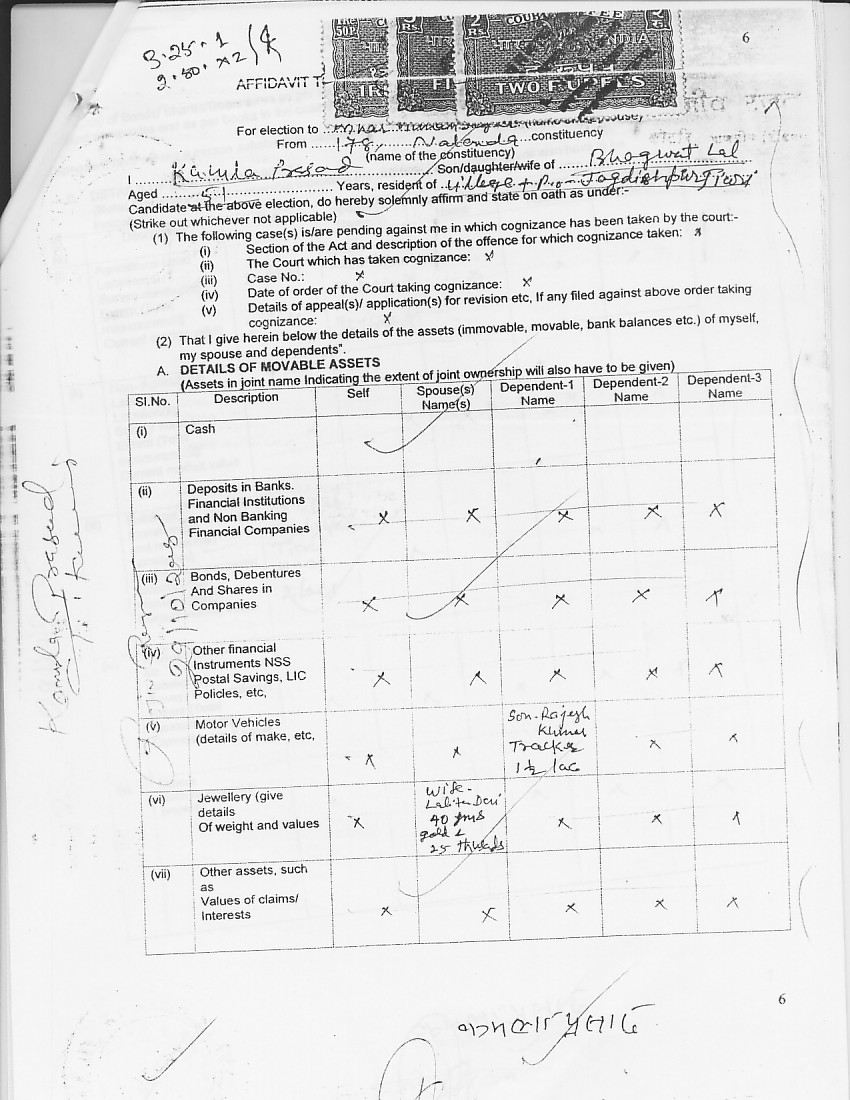 6
3.25.1
2.50.x2
AFFIDAVIT
COURT FEE
INDIA
TWO RUPEES
For election to
From 178, Nalanda constituency
(name of the constituency)
I Kamla Prasad Son/daughter/wife of Bhagwat Lal
Aged 51 Years, resident of village + P.O - Jagdishpur Tiari
Candidate at the above election, do hereby solemnly affirm and state on oath as under:-
(Strike out whichever not applicable)
(1) The following case(s) is/are pending against me in which cognizance has been taken by the court:-
(i) Section of the Act and description of the offence for which cognizance taken: x
(ii) The Court which has taken cognizance: x
(iii) Case No.: x
(iv) Date of order of the Court taking cognizance: x
(v) Details of appeal(s)/ application(s) for revision etc, If any filed against above order taking
cognizance: x
(2) That I give herein below the details of the assets (immovable, movable, bank balances etc.) of myself,
my spouse and dependents".
A. DETAILS OF MOVABLE ASSETS
(Assets in joint name Indicating the extent of joint ownership will also have to be given)
Sl.No. Description Self Spouse(s) Name(s) Dependent-1 Name Dependent-2 Name Dependent-3 Name
(i) Cash
(ii) Deposits in Banks.
Financial Institutions
and Non Banking
Financial Companies x x x x x
(iii) Bonds, Debentures
And Shares in
Companies x x x x x
(iv) Other financial
Instruments NSS
Postal Savings, LIC
Policies, etc, x x x x x
(v) Motor Vehicles
(details of make, etc, x x x x
Son-Rajesh
Kumar
Tracker
1½ lac
(vi) Jewellery (give
details
Of weight and values x x x x
Wife-
Lalita Devi
40 gms
gold
25 thousands
(vii) Other assets, such
as
Values of claims/
Interests x x x x x
6
कमला प्रसाद